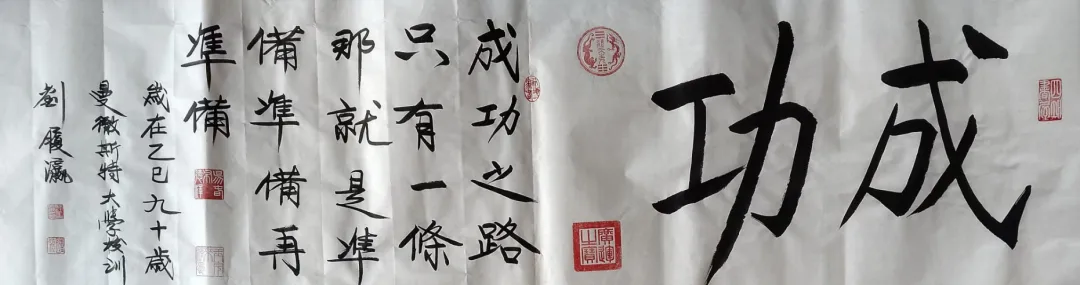 成功
廣運之寶
成功之路
只有一條
那就是準
備準備再
準備
歲在乙巳九十歲
曼徹斯特大學校訓
劉履瀛